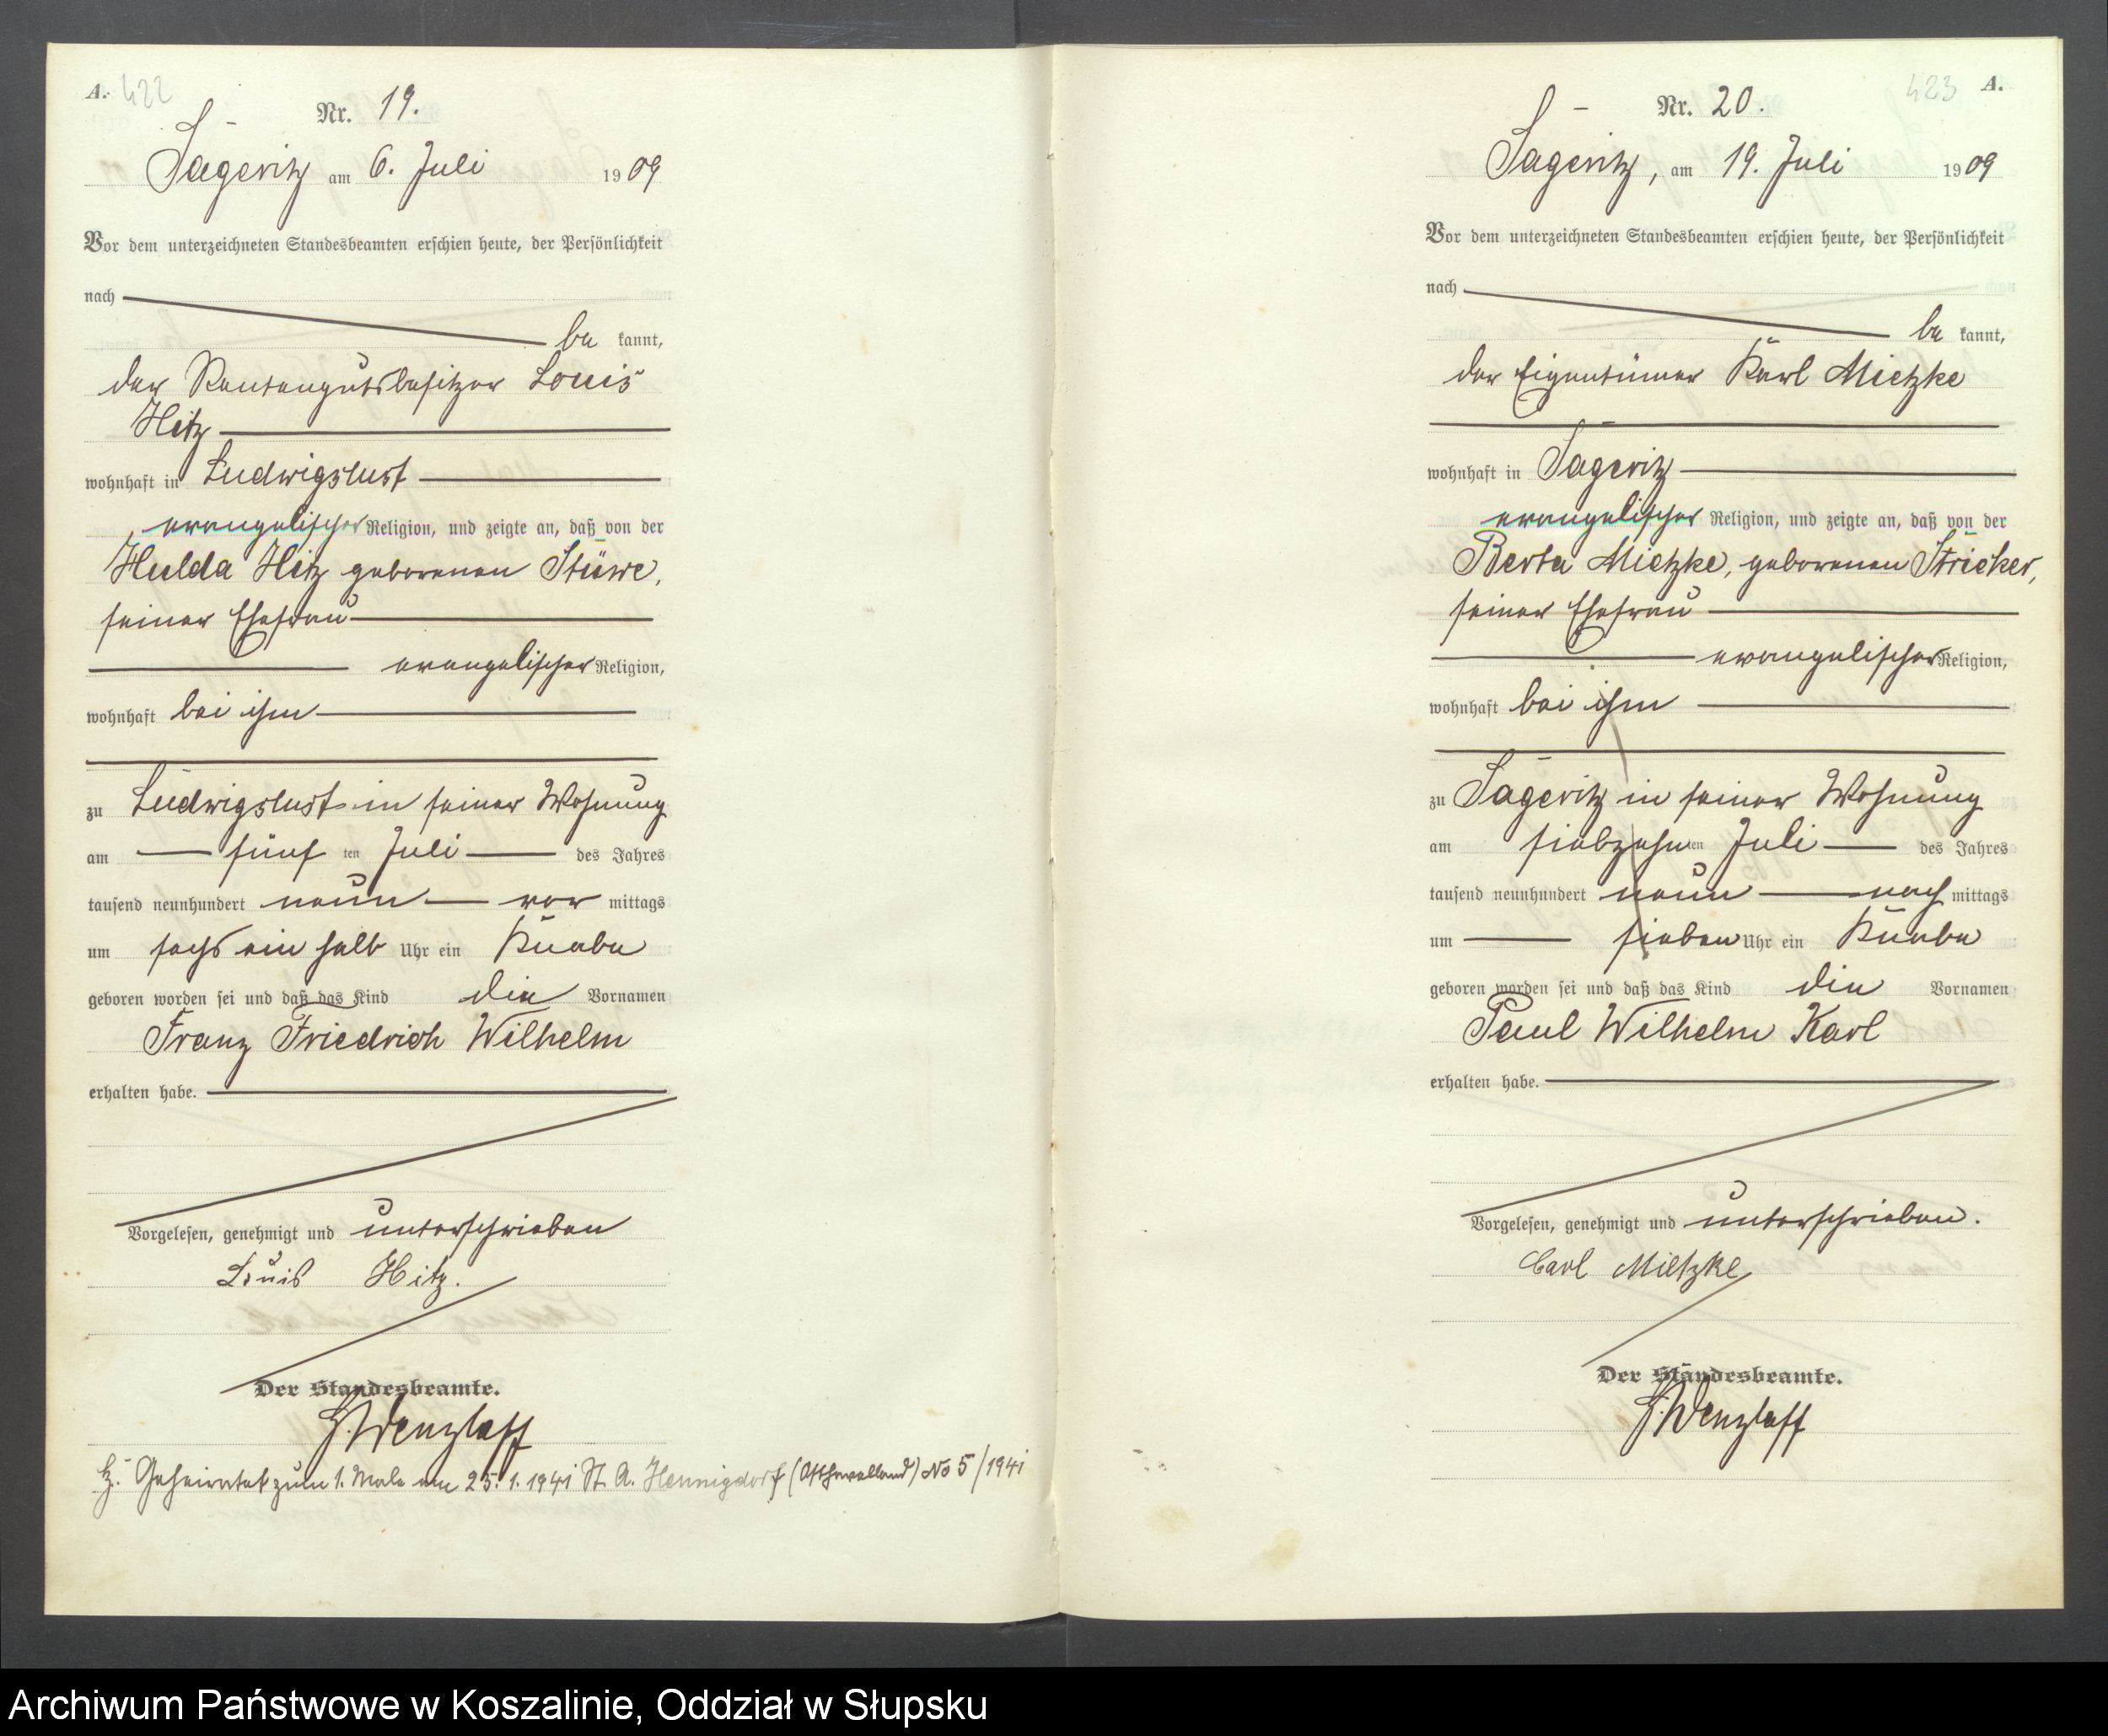 A. 422
Nr. 19.
Sageritz am 6. Juli 1909
Vor dem unterzeichneten Standesbeamten erschien heute, der Persönlichkeit
nach
be kannt,
der Rentengutsbesitzer Louis
Hitz
wohnhaft in Ludwigslust
evangelischer Religion, und zeigte an, daß von der
Hulda Hitz geborenen Stüwe,
seiner Ehefrau
evangelischer Religion,
wohnhaft bei ihm
zu Ludwigslust in seiner Wohnung
am fünf ten Juli des Jahres
tausend neunhundert neun vor mittags
um sechs ein halb Uhr ein Knabe
geboren worden sei und daß das Kind die Vornamen
Franz Friedrich Wilhelm
erhalten habe.
Vorgelesen, genehmigt und unterschrieben
Louis Hitz.
Der Standesbeamte.
H. Wenzlaff
Geheiratet zum 1. Male am 25.1.1941 St. A. Hennigdorf (Osthavelland) No 5/1941
423 A.
Nr. 20.
Sageritz, am 19. Juli 1909
Vor dem unterzeichneten Standesbeamten erschien heute, der Persönlichkeit
nach
be kannt,
der Eigentümer Karl Mietzke
wohnhaft in Sageritz
evangelischer Religion, und zeigte an, daß von der
Berta Mietzke, geborenen Stricker,
seiner Ehefrau
evangelischer Religion,
wohnhaft bei ihm
zu Sageritz in seiner Wohnung
am siebzehn ten Juli des Jahres
tausend neunhundert neun nach mittags
um sieben Uhr ein Knabe
geboren worden sei und daß das Kind die Vornamen
Paul Wilhelm Karl
erhalten habe.
Vorgelesen, genehmigt und unterschrieben.
Carl Mietzke
Der Standesbeamte.
H. Wenzlaff
Archiwum Państwowe w Koszalinie, Oddział w Słupsku